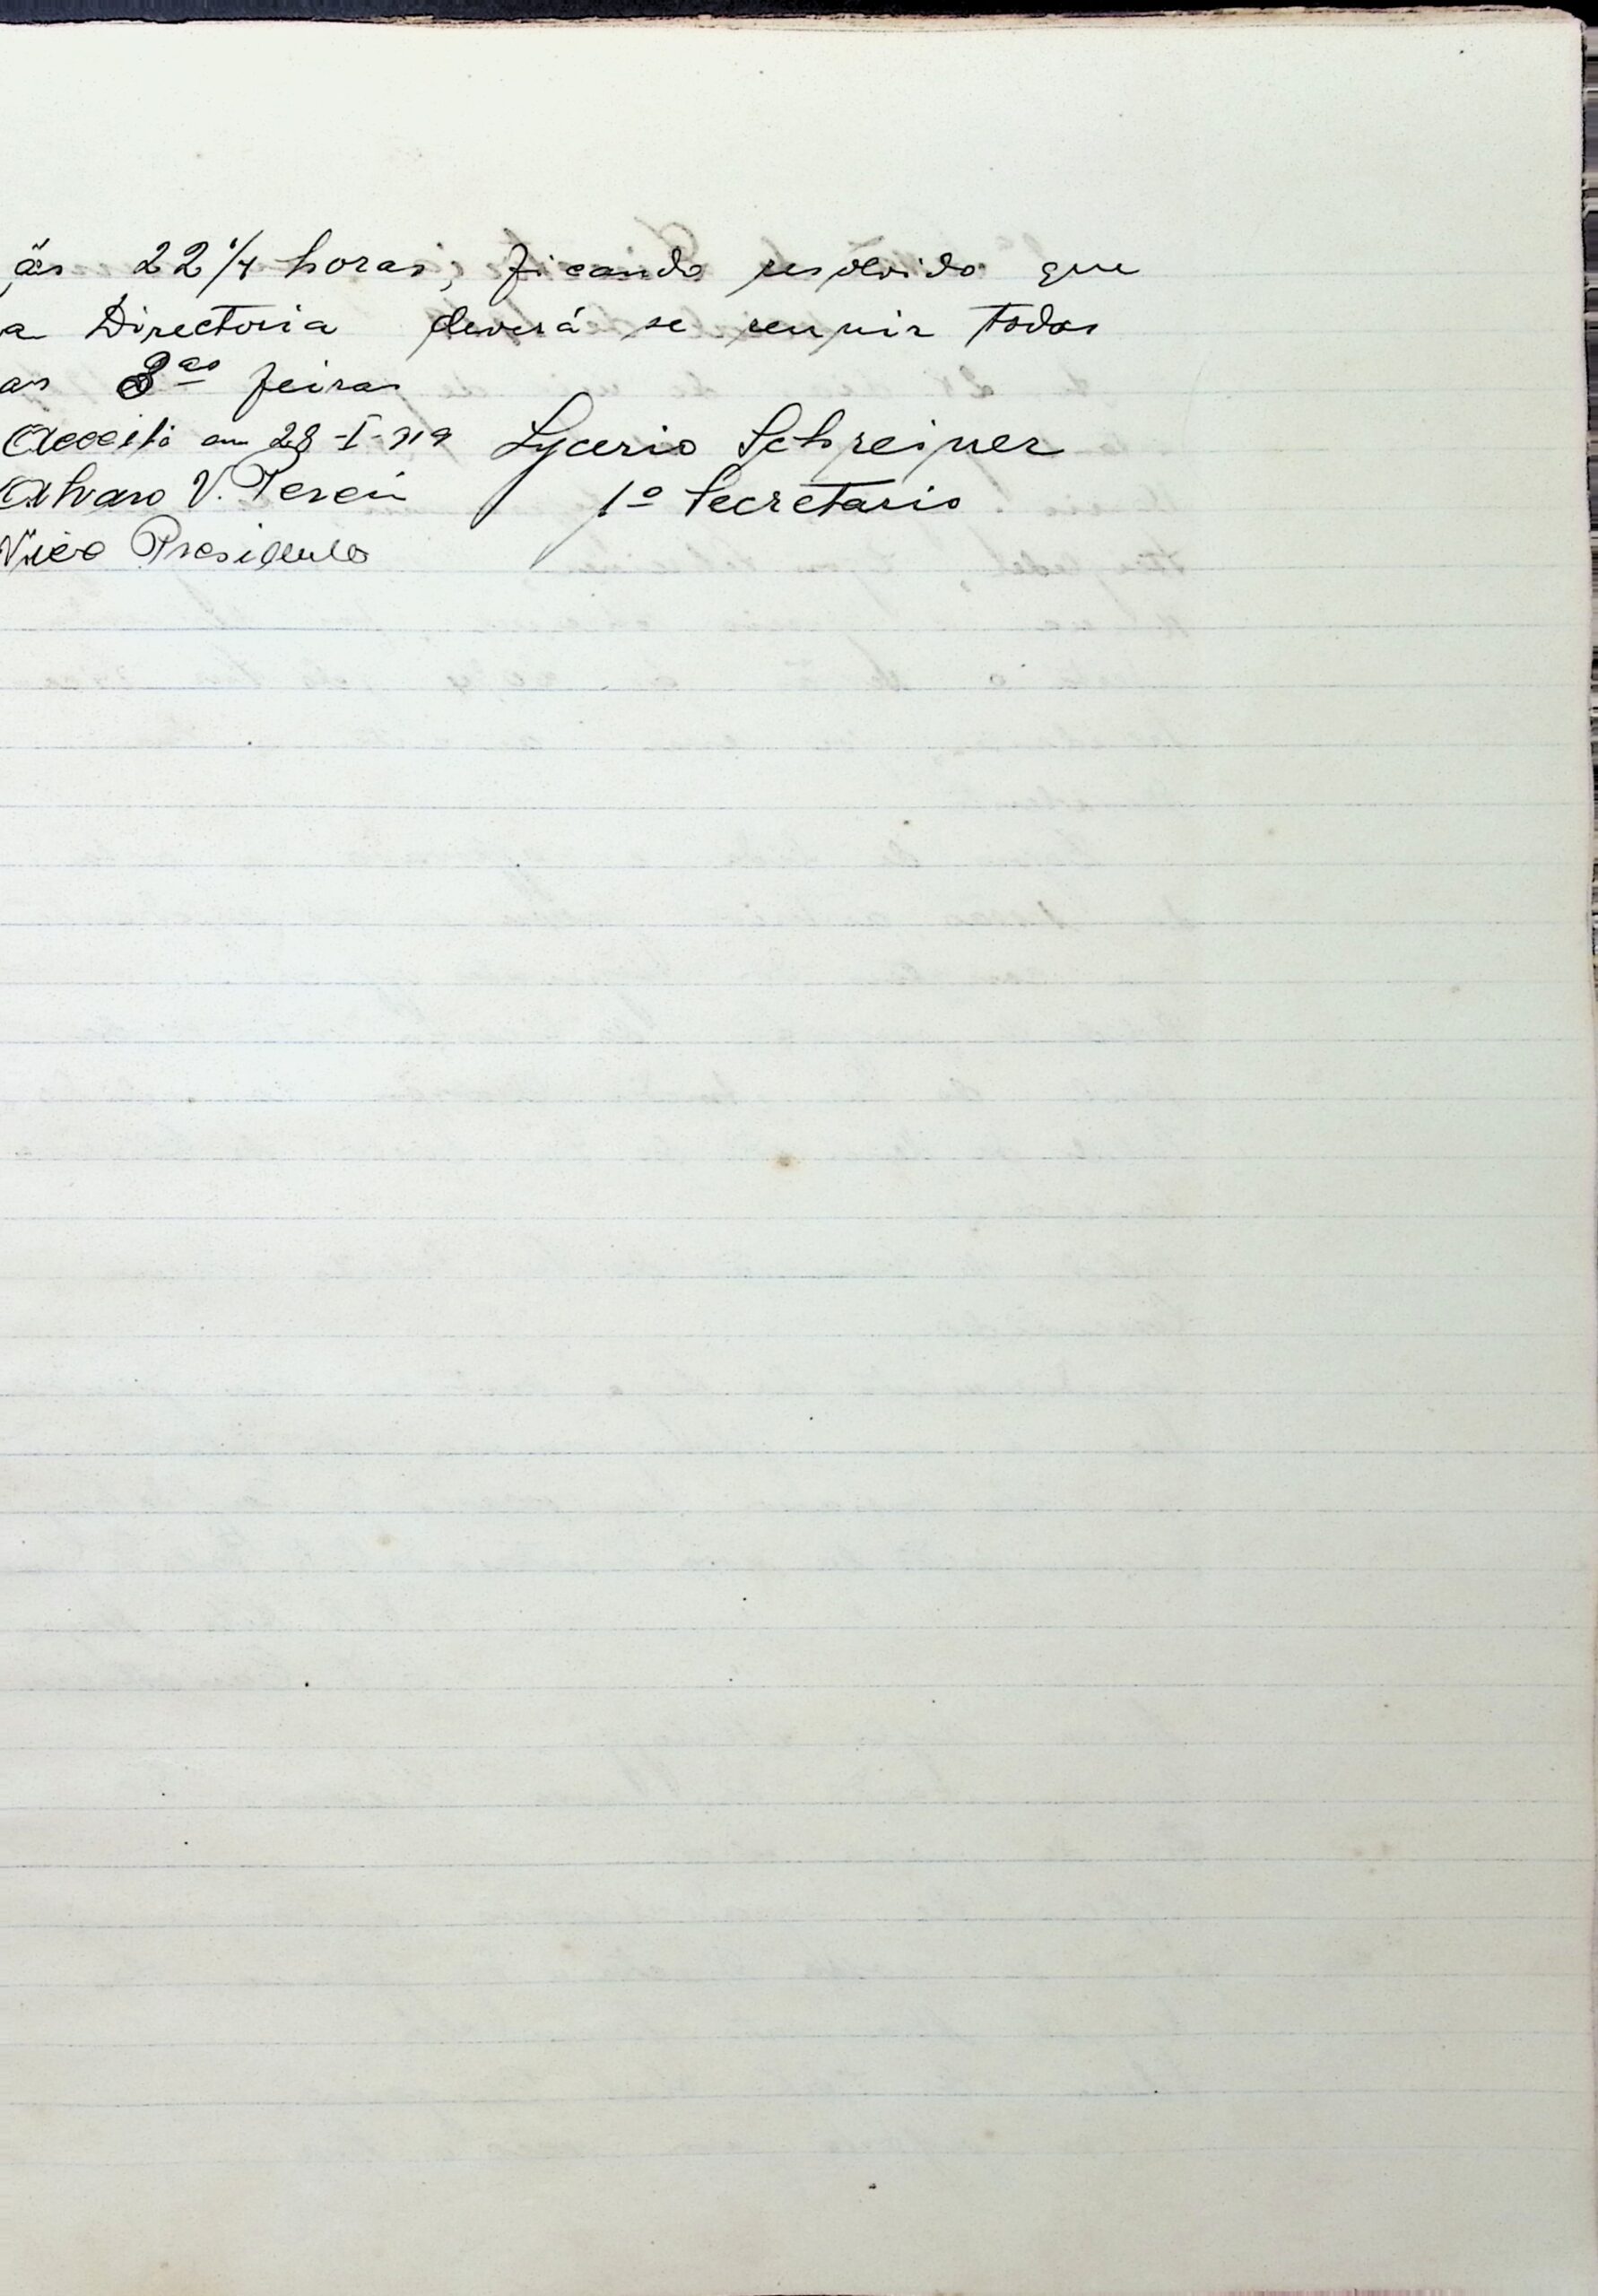 ás 22 1/4 horas, ficando resolvido que
a Directoria deverá se reunir todas
as 3as feiras
Acceita em 28-I-919 Lycerio Schreiner
Alvaro V. Pereir 1º Secretario
Vice Presidente